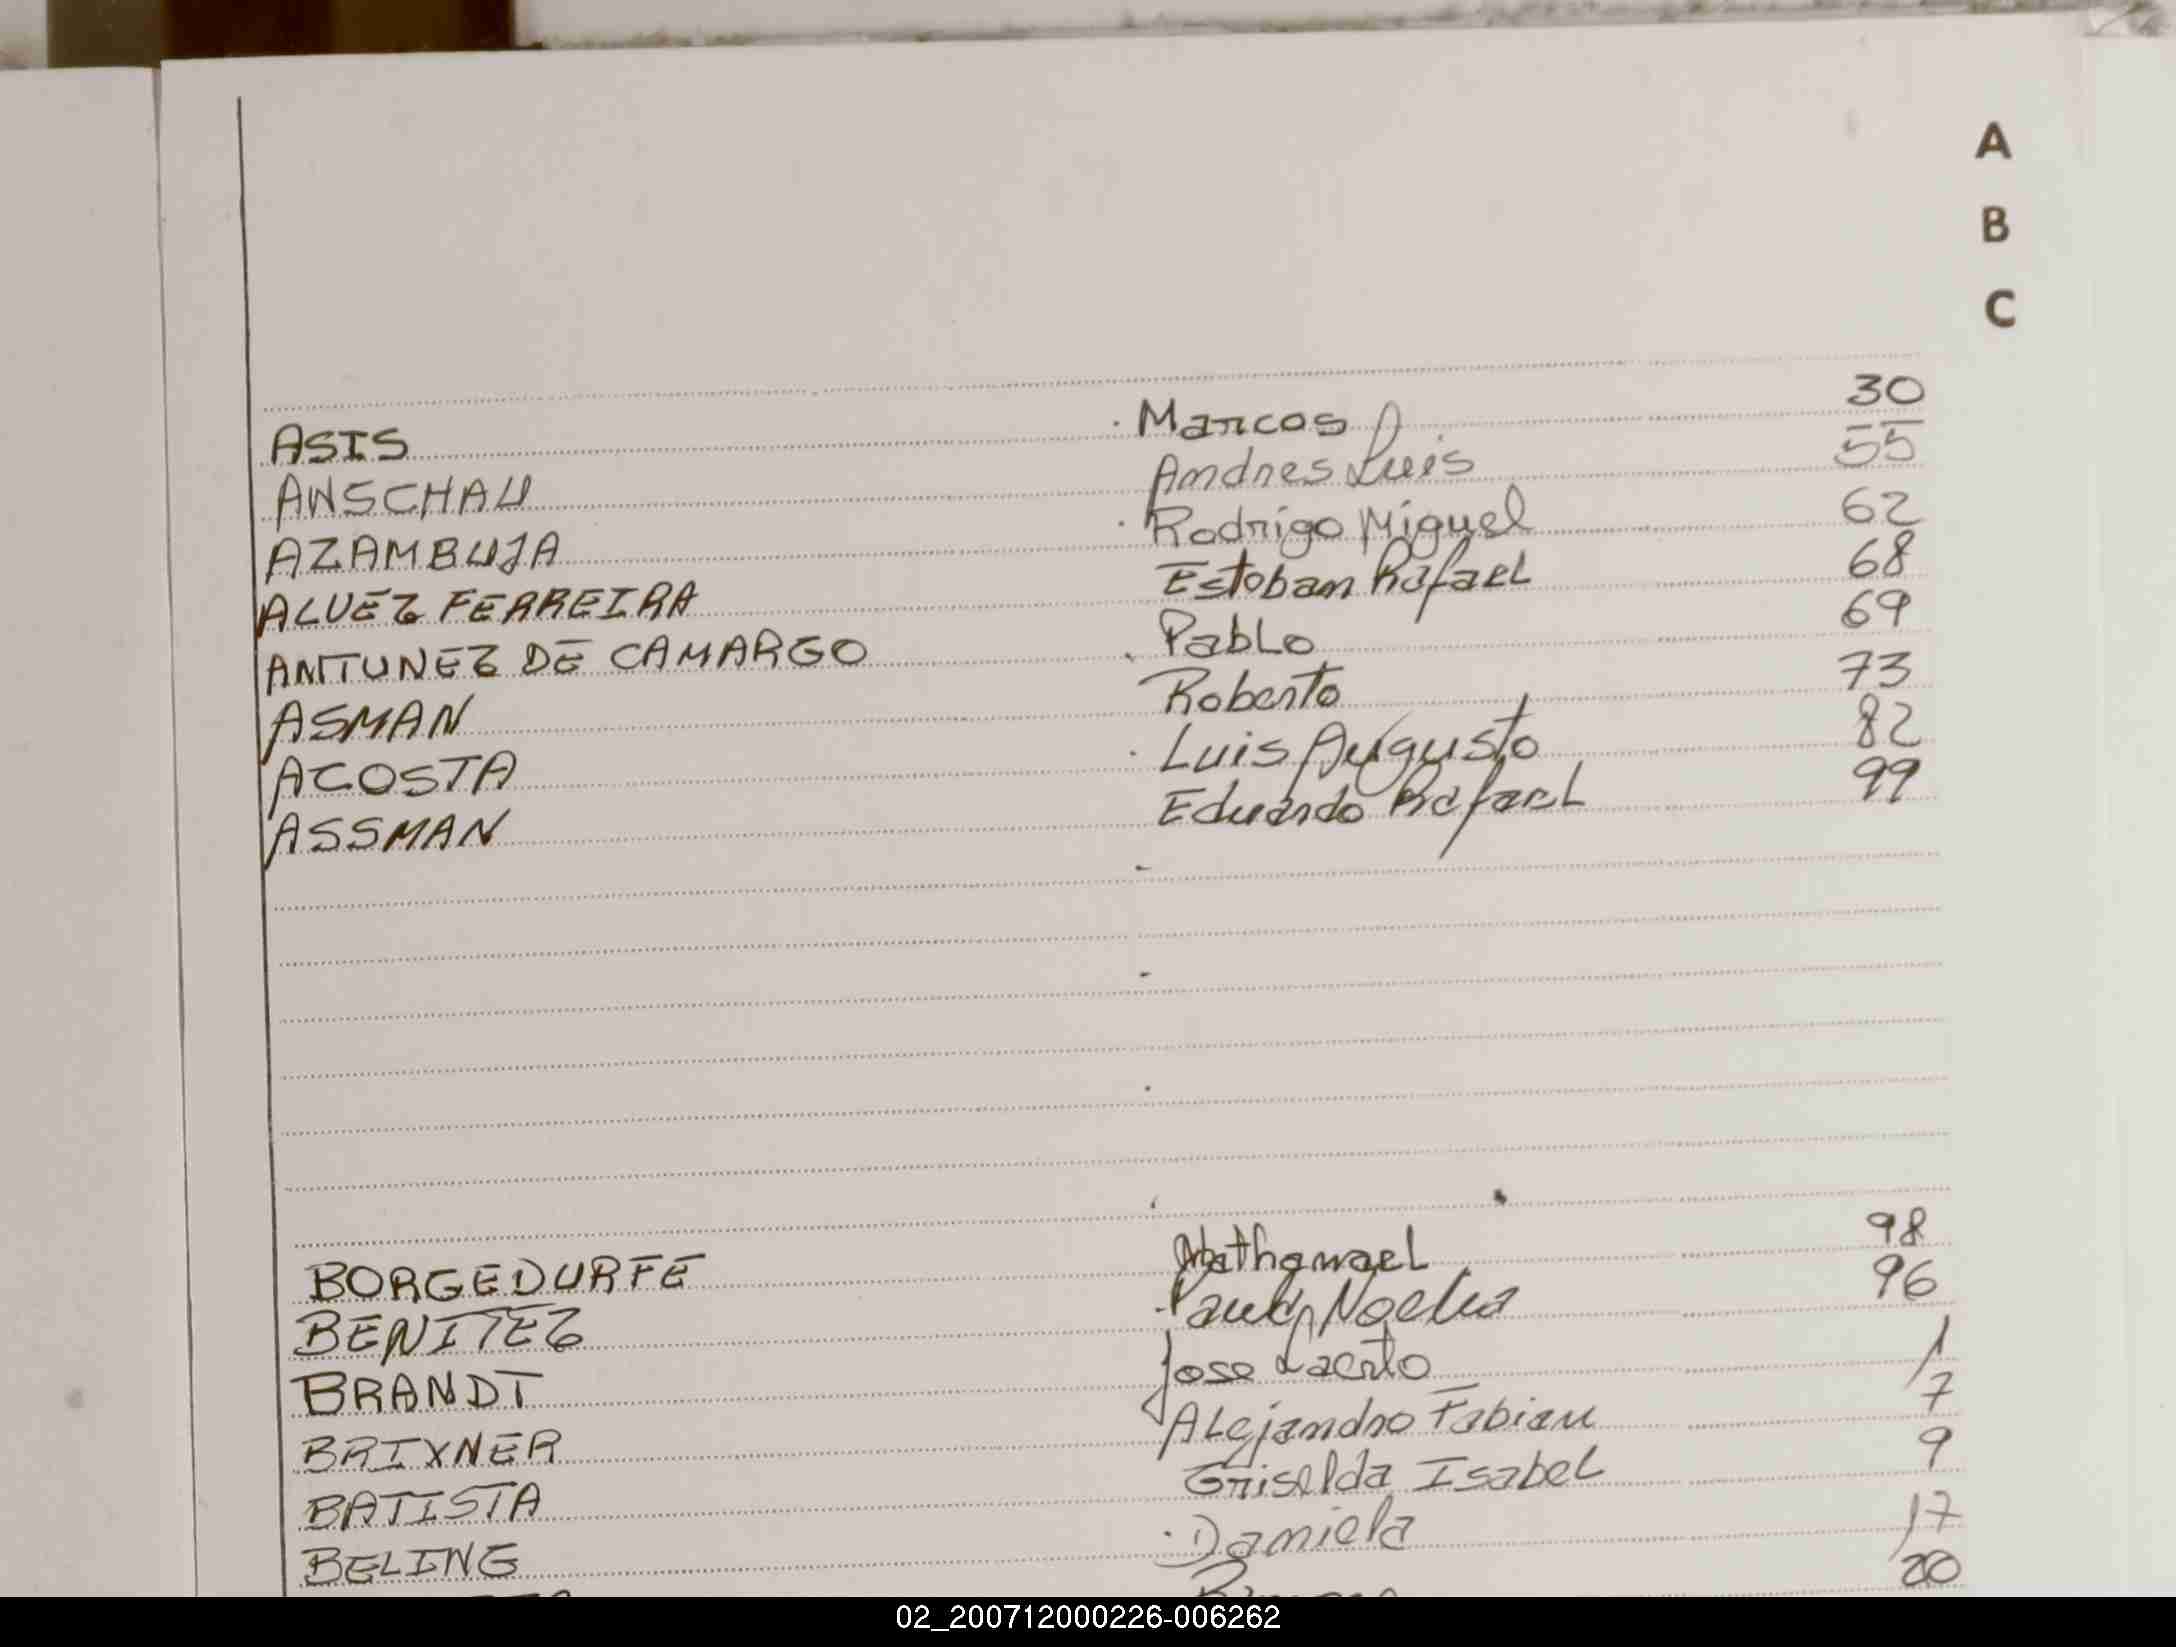 A
B
C
ASIS Marcos 30
ANSCHAU Andres Luis 55
AZAMBUJA Rodrigo Miguel 62
ALVEZ FERREIRA Esteban Rafael 68
ANTUNEZ DE CAMARGO Pablo 69
ASMAN Roberto 73
ACOSTA Luis Augusto 82
ASSMAN Eduardo Rafael 99
BORGEDURFE Nathanael 98
BENITEZ Noelia 96
BRANDT Jose 1
BRIXNER Alejandro Fabian 7
BATISTA Griselda Isabel 9
BELING Daniela 17
20
02_200712000226-006262